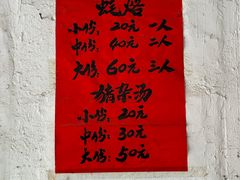 蚝烙
小份：20元 一人
中份：40元 二人
大份：60元 三人
猪杂汤
小份：20元
中份：30元
大份：50元